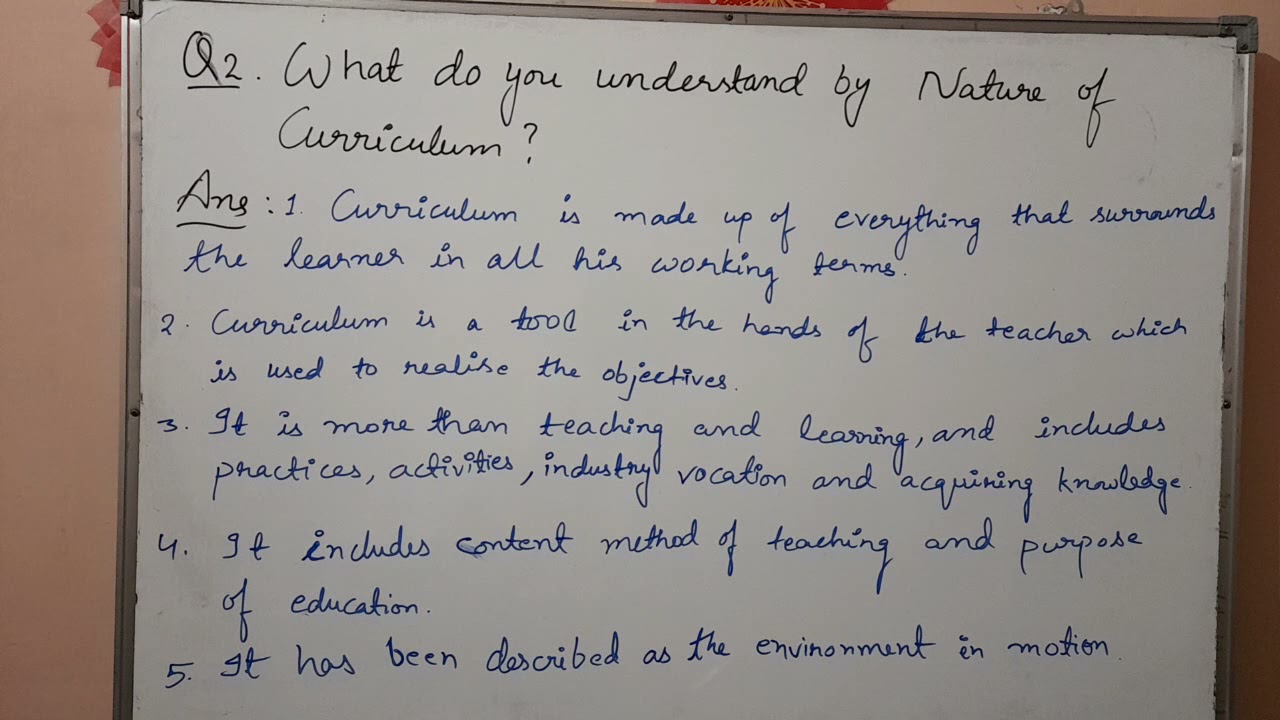 Q2. What do you understand by Nature of
Curriculum?
Ans: 1. Curriculum is made up of everything that surrounds
the learner in all his working terms.
2. Curriculum is a tool in the hands of the teacher which
is used to realise the objectives.
3. It is more than teaching and learning, and includes
practices, activities, industry vocation and acquiring knowledge.
4. It includes content method of teaching and purpose
of education.
5. It has been described as the environment in motion.